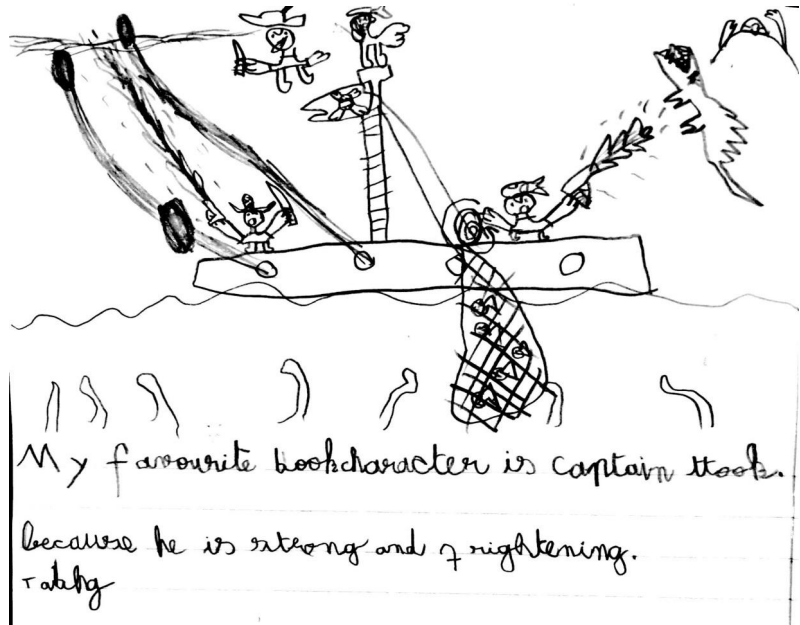 My favourite bookcharacter is captain Hook.
because he is strong and frightening.